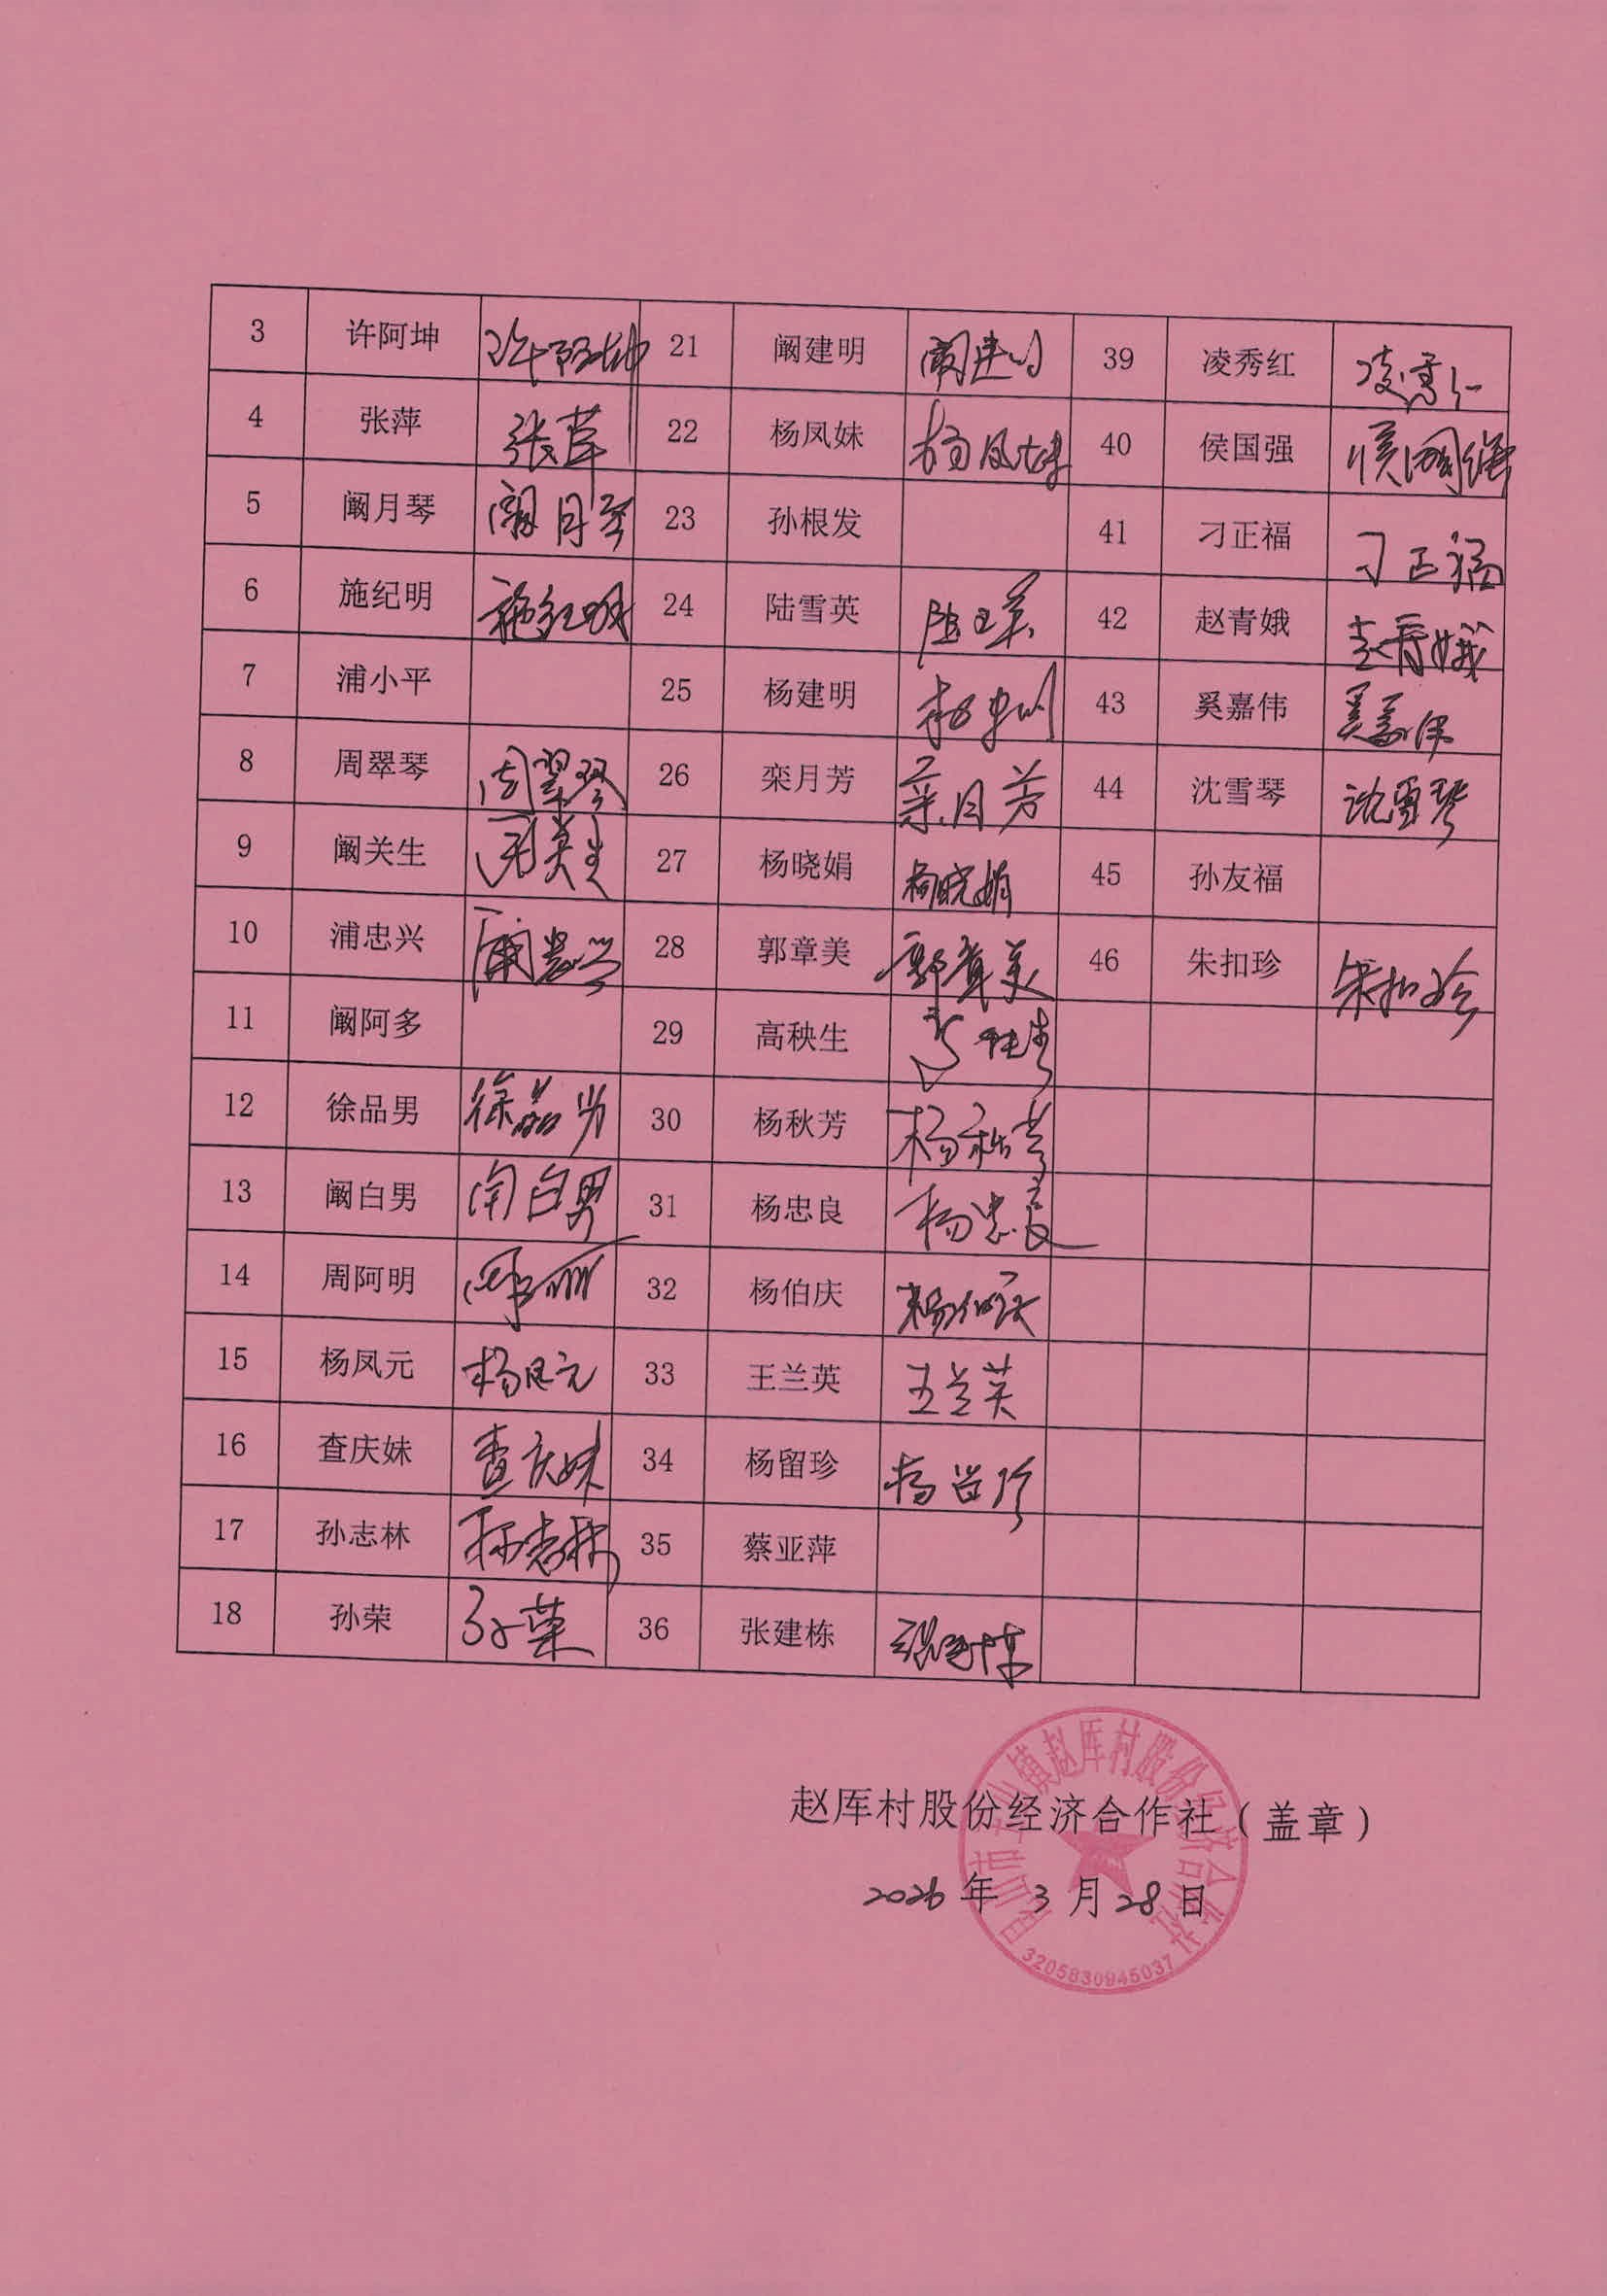 3 许阿坤 许阿坤 21 阚建明 阚建明 39 凌秀红 凌秀红
4 张萍 张萍 22 杨凤妹 杨凤妹 40 侯国强 侯国强
5 阚月琴 阚月琴 23 孙根发 41 刁正福 刁正福
6 施纪明 施纪明 24 陆雪英 陆雪英 42 赵青娥 赵青娥
7 浦小平 25 杨建明 杨建明 43 奚嘉伟 奚嘉伟
8 周翠琴 周翠琴 26 栾月芳 栾月芳 44 沈雪琴 沈雪琴
9 阚关生 27 杨晓娟 杨晓娟 45 孙友福
10 浦忠兴 28 郭章美 郭章美 46 朱扣珍 朱扣珍
11 阚阿多 29 高秧生
12 徐品男 徐品男 30 杨秋芳 杨秋芳
13 阚白男 阚白男 31 杨忠良 杨忠良
14 周阿明 32 杨伯庆 杨伯庆
15 杨凤元 杨凤元 33 王兰英 王兰英
16 查庆妹 查庆妹 34 杨留珍 杨留珍
17 孙志林 孙志林 35 蔡亚萍
18 孙荣 孙荣 36 张建栋 张建栋
赵厍村股份经济合作社（盖章）
2026年3月28日
昆山市玉山镇赵厍村股份经济合作社
3205830945037